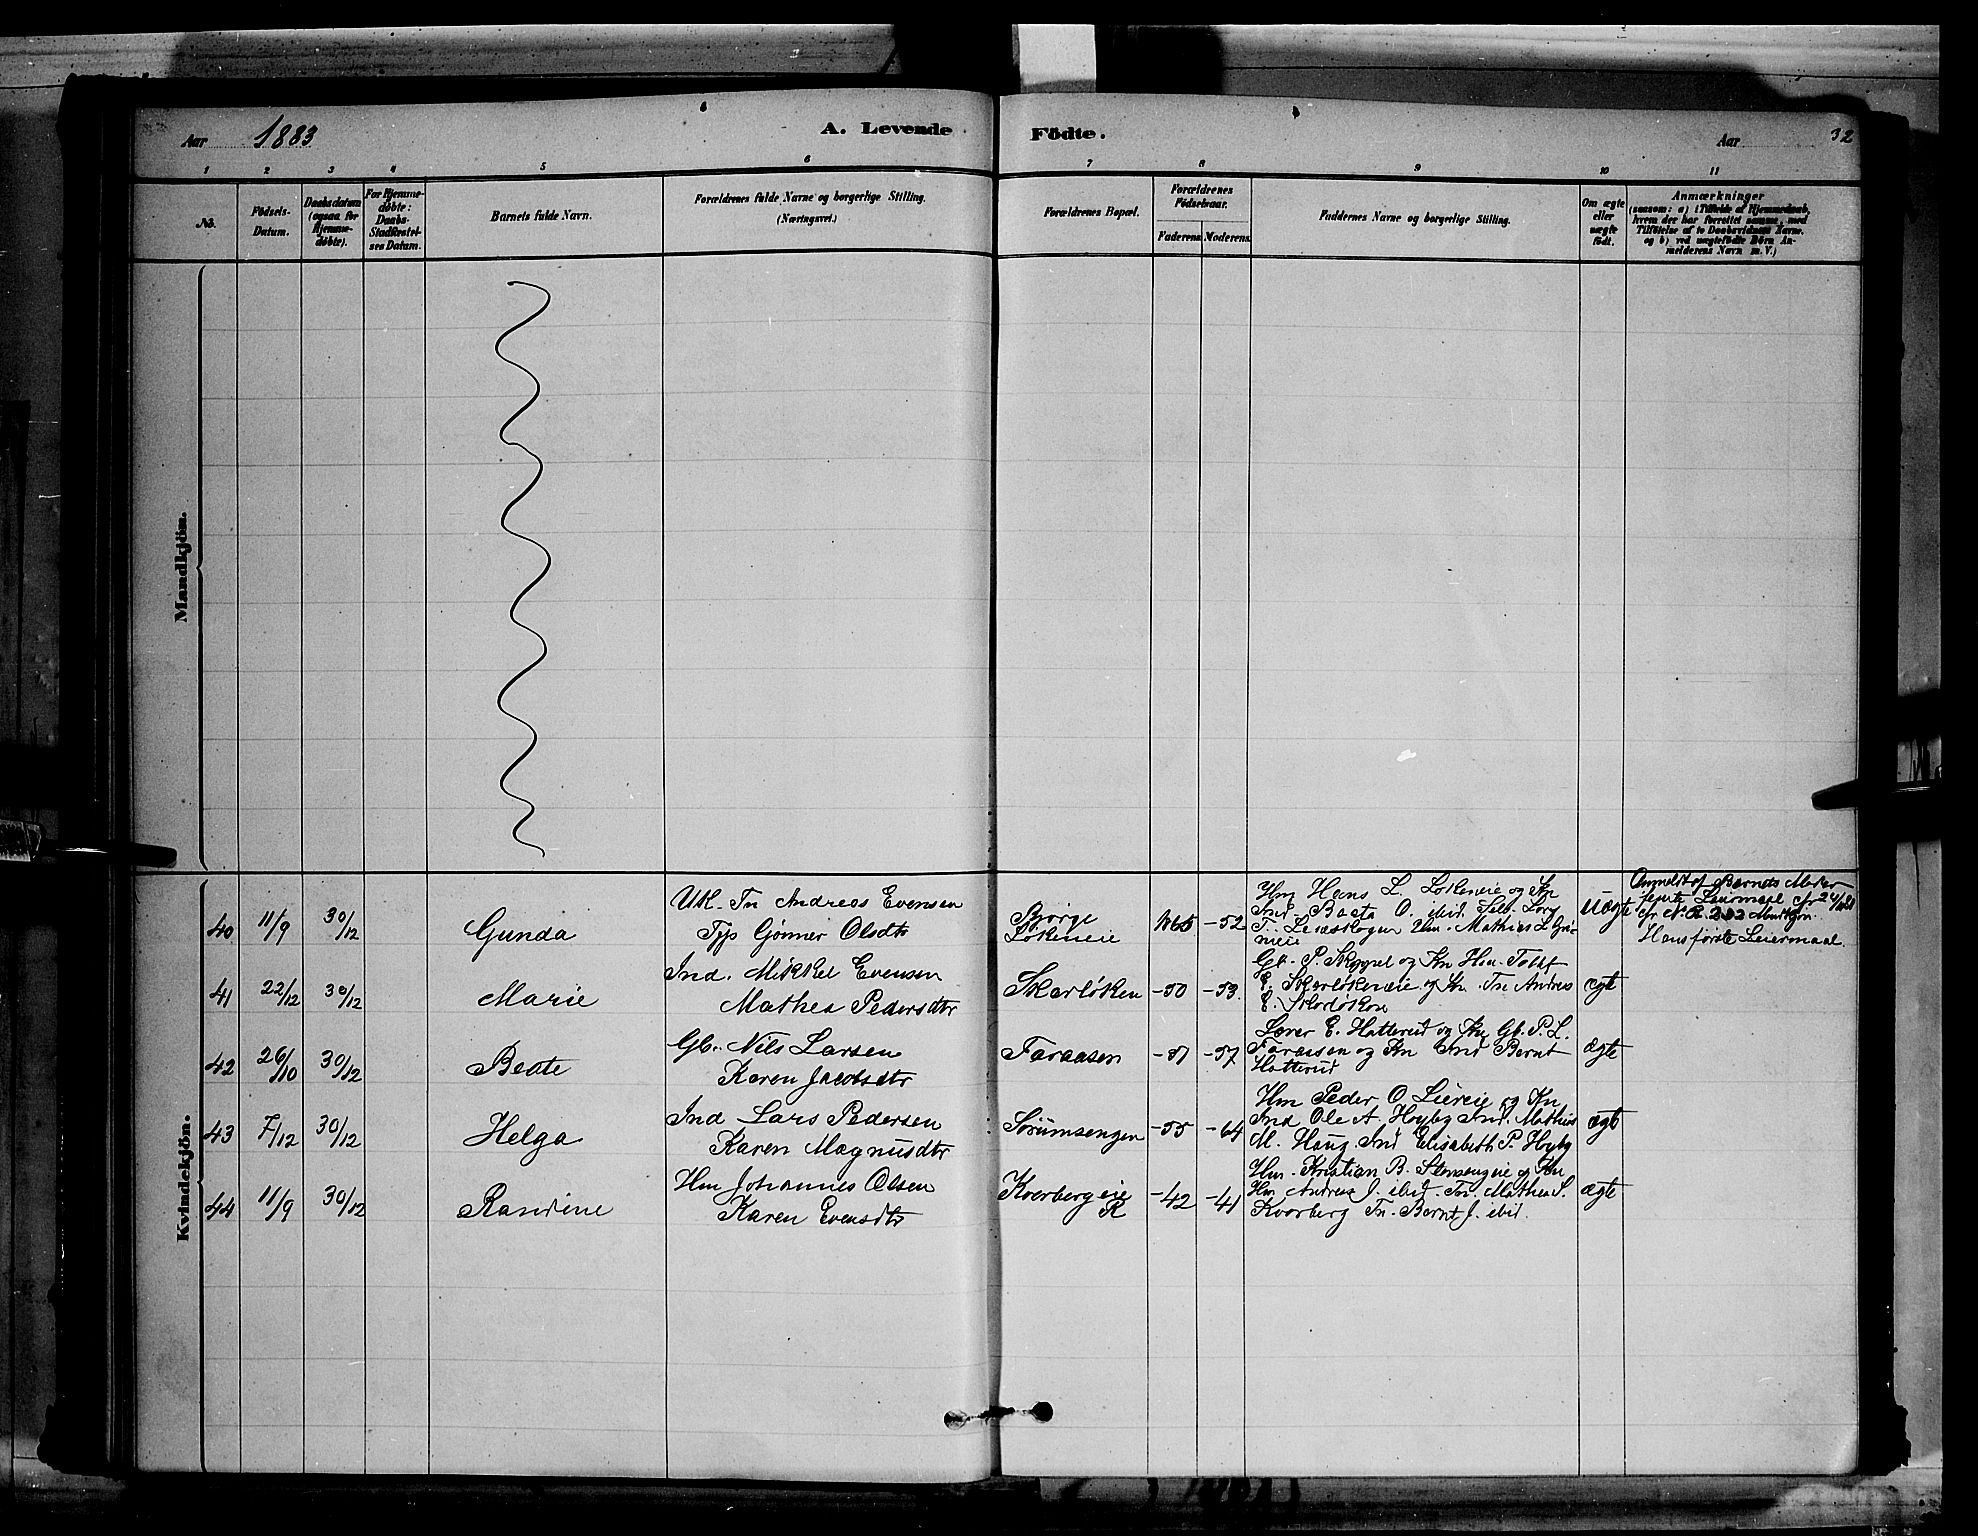 Aar 1883 A. Levende Födte. Aar 32
1 2 3 4 5 6 7 8 9 10 11
No.
Födsels-Datum.
Daabsdatum (ogsaa for Hjemme-døbte).
For Hjemme-døbte: Daabs-Stadfæstel-ses Datum.
Barnets fulde Navn.
Forældrenes fulde Navne og borgerlige Stilling. (Næringsvei.)
Forældrenes Bopæl.
Forældrenes Födselsaar.
Faderens Moderens
Faddernes Navne og borgerlige Stilling.
Om ægte eller uægte født.
Anmærkninger
(saasom: a) i Tilfælde af Hjemmedaab,
hvem der har forrettet samme, med
Tilföielse af to Daabsvidners Navne.
og b) ved uægtefödte Börn An-
melderens Navn m. V.)
Mandkjön.
Kvindekjön.
40 11/9 30/12 Gunda
Uk. Tn Andreas Evensen
Tyv Gjønner Olsdtr
Bjørge
Løkeneie
-52
Hm Hans L. Løkeneie og Kn
Ind. Basta O. ibid. Selb. Lars
Uægte
Anmeldt af Barnets Moder
Hans første Leiermaal.
41 22/12 30/12 Marie
Ind. Mikkel Evensen
Mathea Pedersdtr
Skarløken -50 -53
Gb. P. Skyset og Kn Hm. Tolef
E. Skarløkeneie og Kn. Tn Andreas
E. Skarløken
ægte
42 26/10 30/12 Beate
Gb. Nils Larsen
Karen Jacobsdtr
Faraasen -57
Lærer E. Hatterud og Kn Gb. P. L.
Faraasen og Kn Ind Bernt
Hatterud
ægte
43 7/12 30/12 Helga
Ind Lars Pedersen
Karen Magnusdtr
Sørumsengen -55 -64
Hm Peder O. Liereie og Kn
Ind Ole A. Høyby Ind. Mathias
M. Haug Ind Elisabeth P. Høyby
ægte
44 11/9 30/12 Randine
Hm Johannes Olsen
Karen Evensdtr
Kværbergeie
R
-42 -41
Hm. Kristian B. Stensengeie og Kn
Hm Andreas J. ibid. Tn. Mathea S.
Kværberg Tn. Bernt J. ibid.
ægte